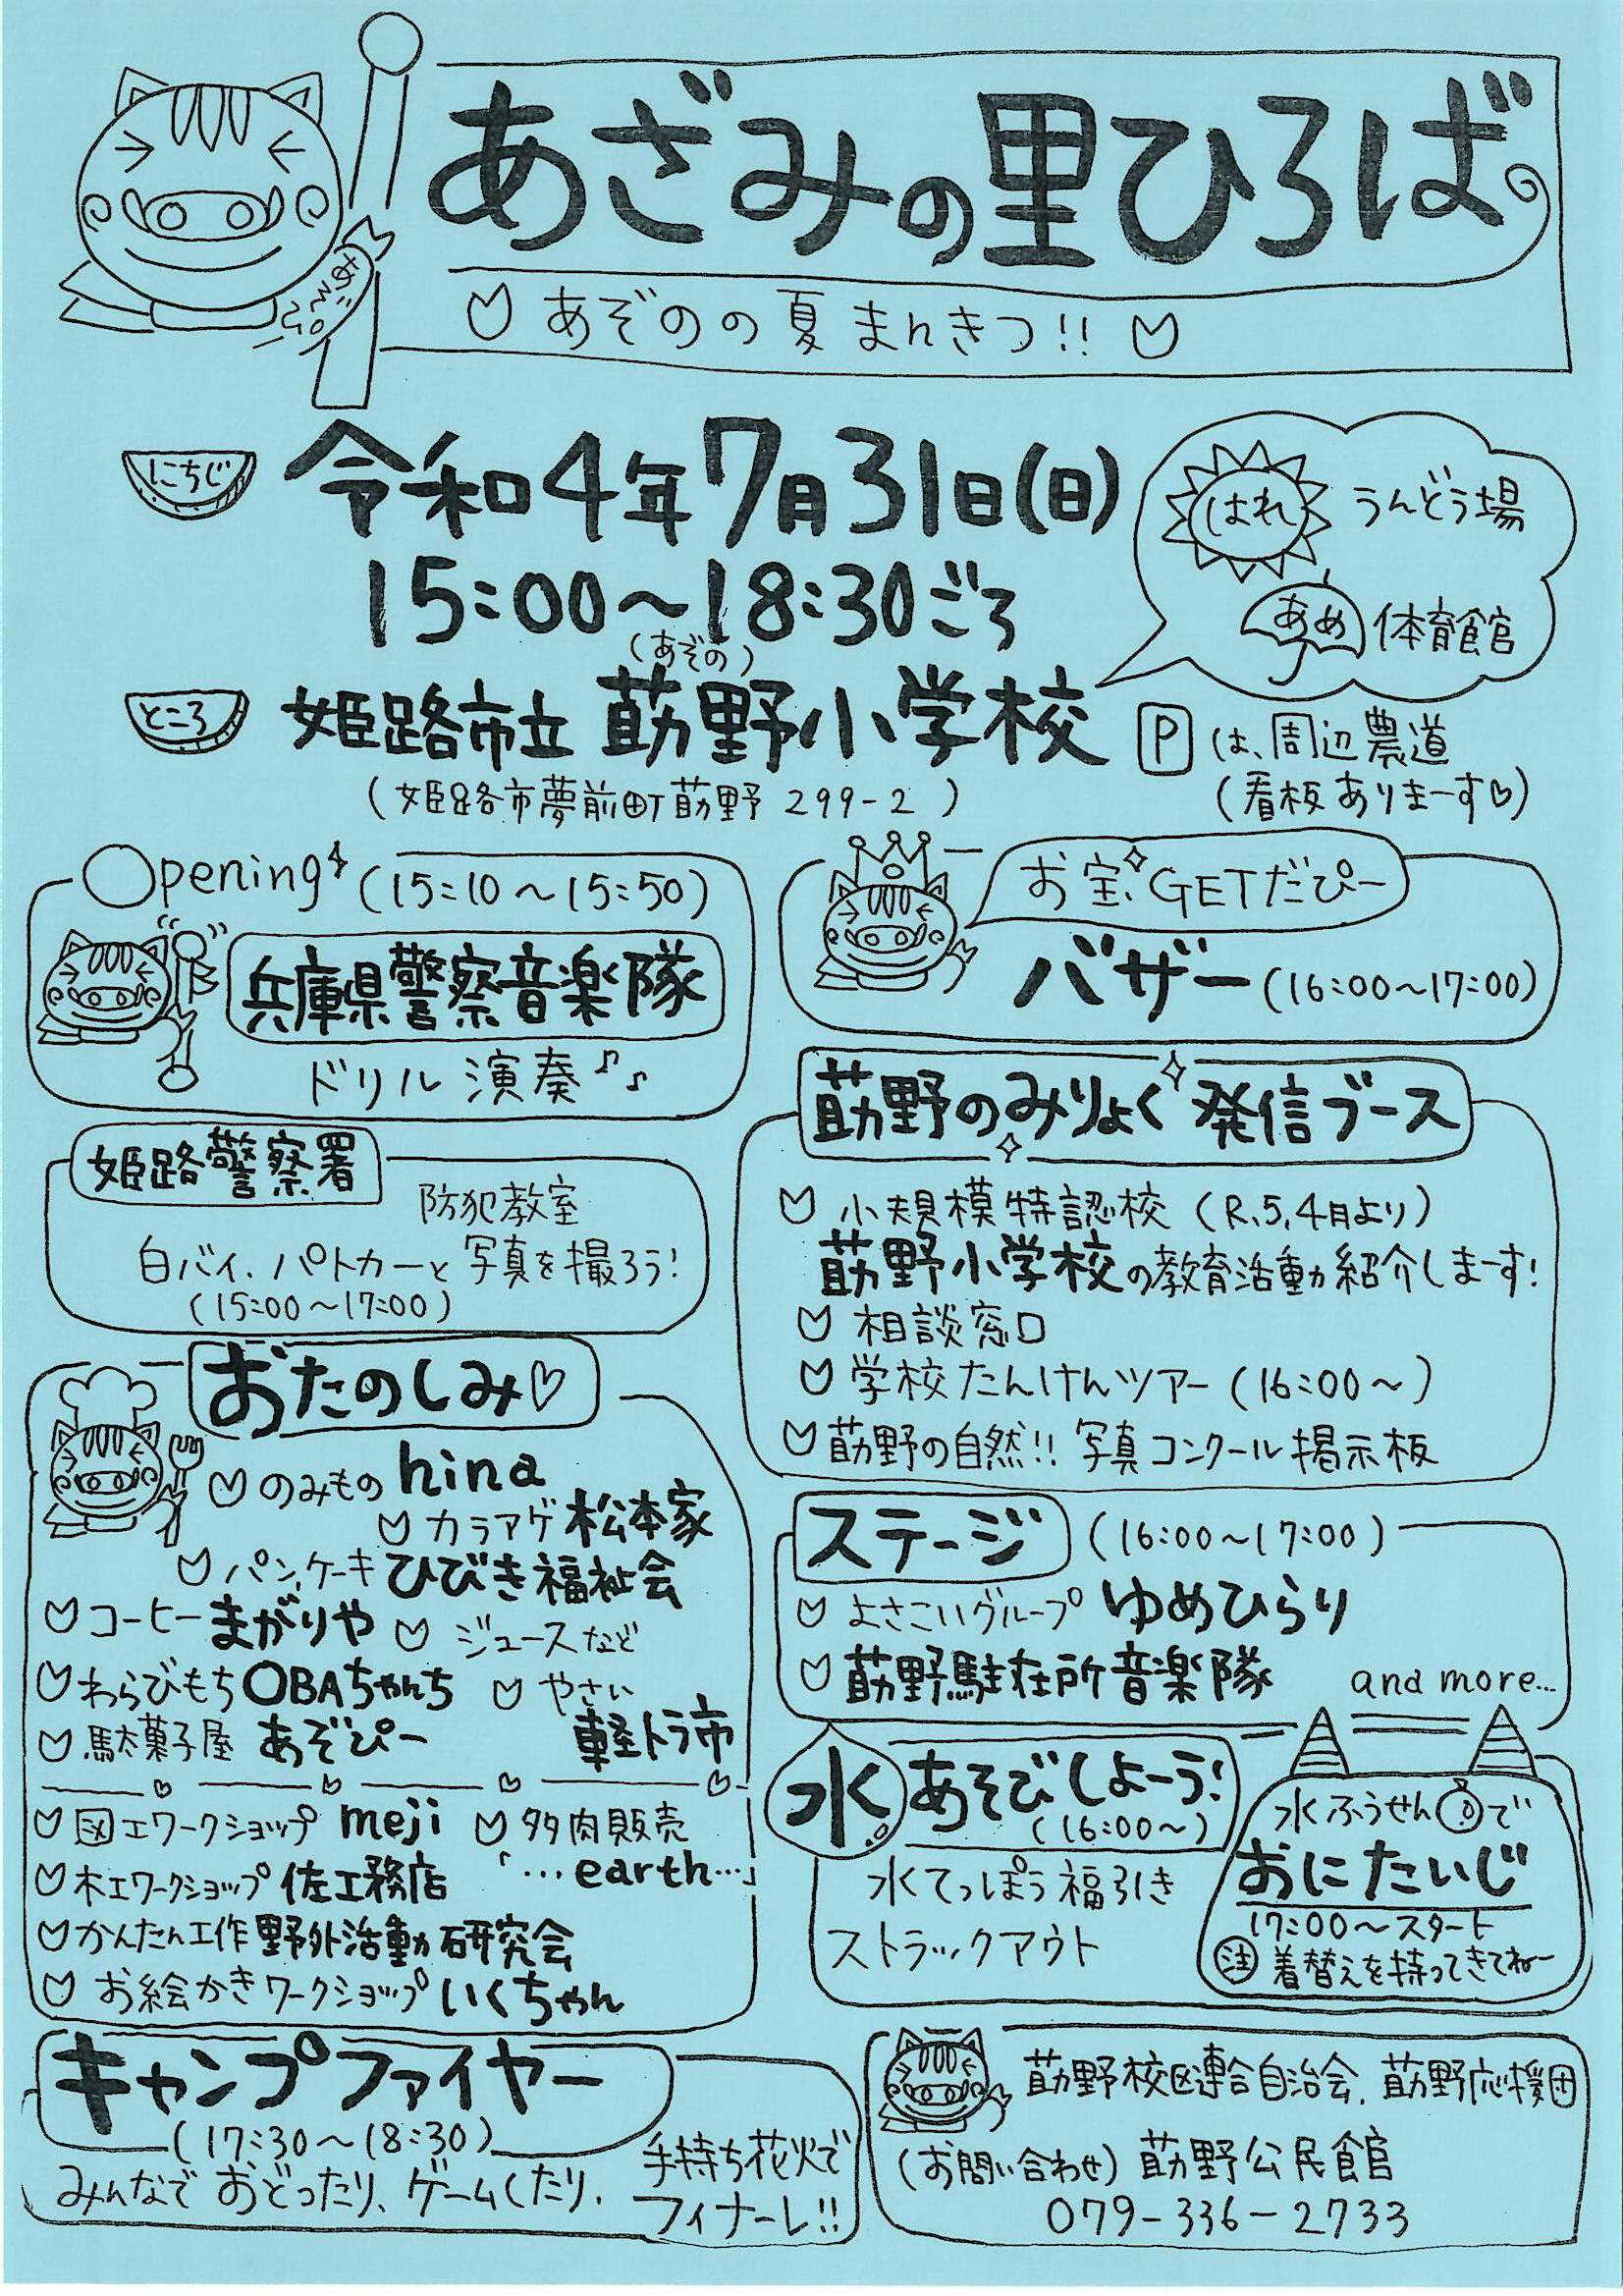 あざみの里ひろば
あぞのの夏まんきつ!!
あぞぴー
にちじ
令和4年7月31日(日)
15:00～18:30ごろ
はれ うんどう場
あめ 体育館
ところ
(あぞの)
姫路市立 莇野小学校
(姫路市夢前町莇野 299-2)
P は、周辺農道
(看板ありまーす♡)
Opening (15:10～15:50)
兵庫県警察音楽隊
ドリル演奏♪♪
お宝、GETだぴー
バザー (16:00～17:00)
姫路警察署
防犯教室
白バイ、パトカーと写真を撮ろう!
(15:00～17:00)
莇野のみりょく発信ブース
小規模特認校 (R.5.4月より)
莇野小学校の教育活動紹介しまーす!
相談窓口
学校たんけんツアー (16:00～)
莇野の自然!! 写真コンクール掲示板
おたのしみ♡
のみもの hina
カラアゲ 松本家
パンケーキ ひびき福祉会
コーヒー まがりや ジュースなど
わらびもち OBAちゃんち やさい
駄菓子屋 あぞぴー 軽トラ市
図工ワークショップ meji 多肉販売
木工ワークショップ 佐工務店 「…earth…」
かんたん工作 野外活動研究会
お絵かきワークショップ いくちゃん
ステージ (16:00～17:00)
よさこいグループ ゆめひらり
莇野駐在所音楽隊 and more...
水あそびしよーう!
(16:00～)
水てっぽう福引き
ストラックアウト
水ふうせんで
おにたいじ
17:00～スタート
注 着替えを持ってきてねー
キャンプファイヤー
(17:30～18:30)
みんなで おどったり、ゲームしたり、
手持ち花火で
フィナーレ!!
莇野校区連合自治会、莇野応援団
(お問い合わせ) 莇野公民館
079-336-2733